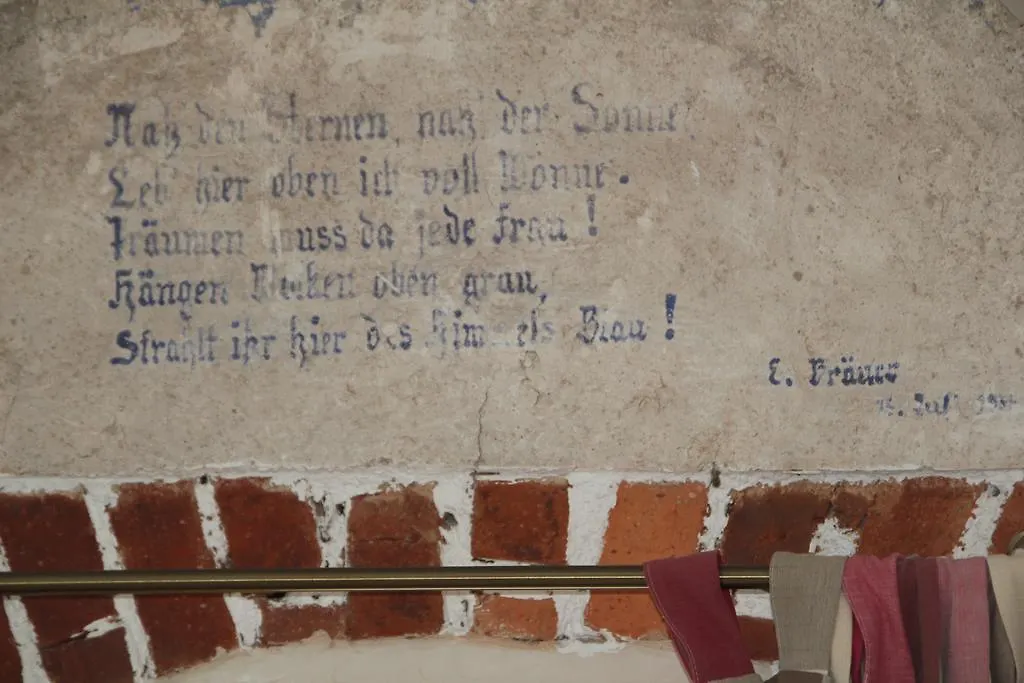 Nach den Sternen, nach der Sonne
Leb' hier oben ich voll Wonne.
Träumen muss da jede Frau!
Hängen Wolken oben grau,
Strahlt ihr hier des Himmels Blau!
E. Bräuer
15. Juli